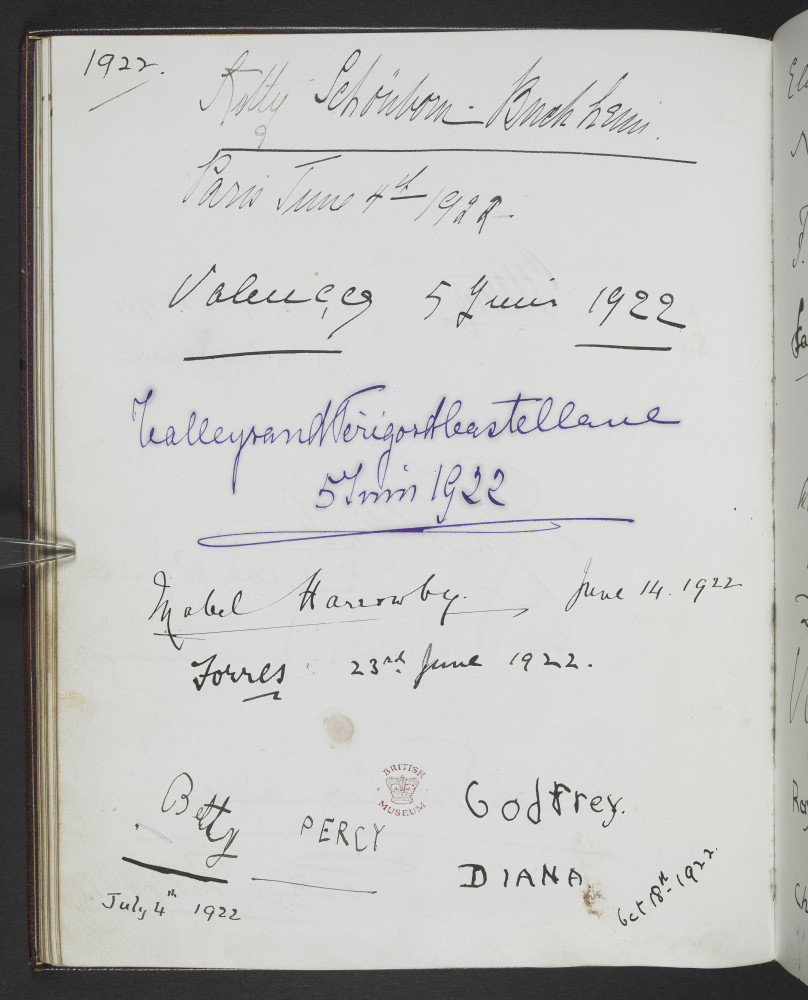 1922.
Schönborn-Buchheim.
Paris June 4th 1922.
Valençay 5 Juin 1922
Talleyrand Périgord Castellane
5 Juin 1922
Mabel Harrowby. June 14. 1922
Forres 23rd June 1922.
BRITISH
MUSEUM
Betty PERCY Godfrey.
DIANA.
July 4th 1922
Oct 18th 1922